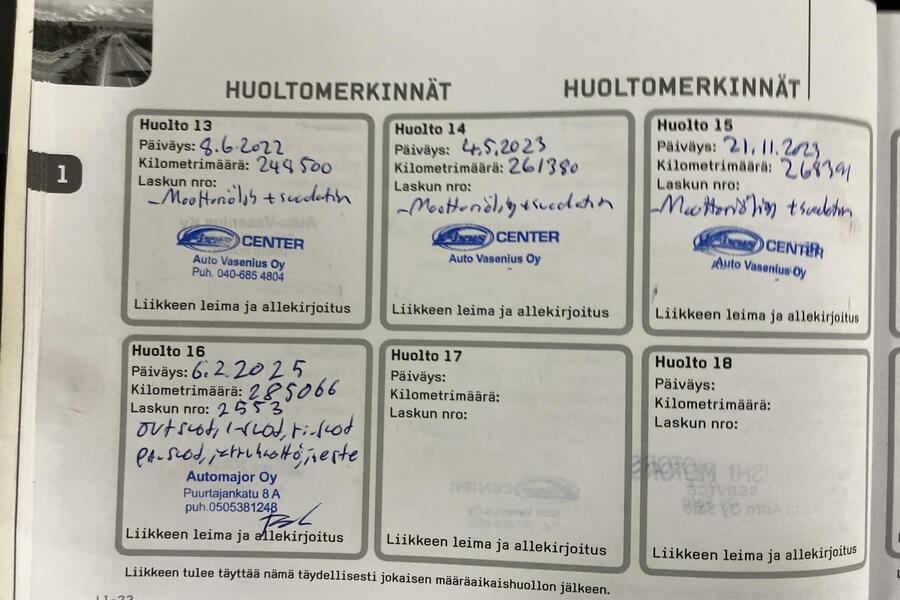 HUOLTOMERKINNÄT
HUOLTOMERKINNÄT
1
Huolto 13
Päiväys: 8.6.2022
Kilometrimäärä: 248500
Laskun nro:
- Moottoriöljy + suodatin
CENTER
Auto Vasenius Oy
Puh. 040-685 4804
Liikkeen leima ja allekirjoitus
Huolto 14
Päiväys: 4.5.2023
Kilometrimäärä: 261380
Laskun nro:
- Moottoriöljy + suodatin
CENTER
Auto Vasenius Oy
Liikkeen leima ja allekirjoitus
Huolto 15
Päiväys: 21.11.2023
Kilometrimäärä: 268391
Laskun nro:
- Moottoriöljy + suodatin
CENTER
Auto Vasenius Oy
Liikkeen leima ja allekirjoitus
Huolto 16
Päiväys: 6.2.2025
Kilometrimäärä: 285066
Laskun nro: 2553
Automajor Oy
Puurtajankatu 8 A
puh.0505381248
Liikkeen leima ja allekirjoitus
Huolto 17
Päiväys:
Kilometrimäärä:
Laskun nro:
Liikkeen leima ja allekirjoitus
Huolto 18
Päiväys:
Kilometrimäärä:
Laskun nro:
Liikkeen leima ja allekirjoitus
Liikkeen tulee täyttää nämä täydellisesti jokaisen määräaikaishuollon jälkeen.